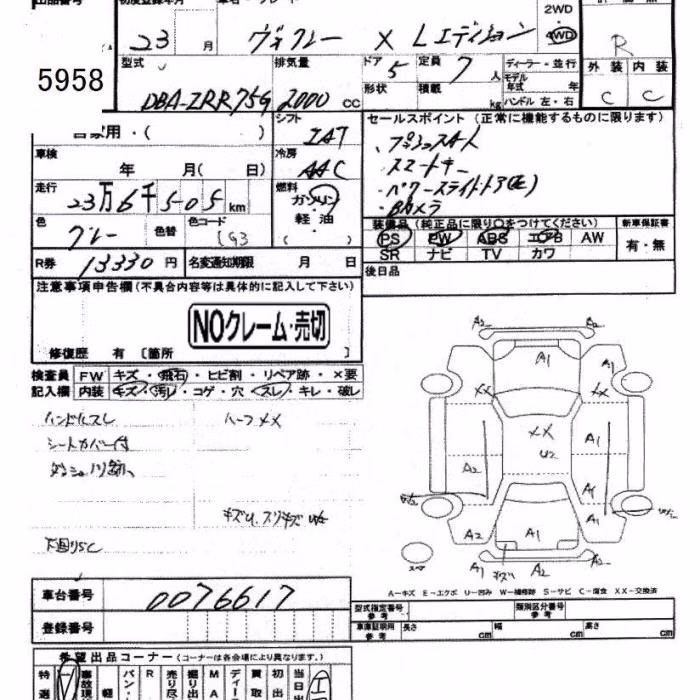 出品番号
初度登録年月
2WD
23 月
ヴォクシー X Lエディション
4WD
R
5958
型式
DBA-ZRR75G
排気量
2000 CC
ドア 5
形状
定員 7 人
積載 kg
ディーラー・並行
モデル年式 年
ハンドル 左・右
外装 内装
C C
自家用・( )
シフト
IAT
冷房
AAC
セールスポイント (正常に機能するものに限ります)
・プッシュスタート
・スマートキー
・パワースライドドア(左)
・Bカメラ
車検
年 月( 日)
走行
23万6千505km
燃料
ガソリン
軽油
( )
色
グレー
色替
色コード
1G3
装備品 (純正品に限り○をつけてください)
PS PW ABS エアB AW
SR ナビ TV カワ
新車保証書
有・無
R券
13330円
名変通知期限 月 日
後日品
注意事項申告欄 (不具合内容等は具体的に記入して下さい)
NOクレーム・売切
修復歴 有 〔箇所 〕
検査員記入欄
FW キズ・飛石・ヒビ割・リペア跡・×要
内装 キズ・汚レ・コゲ・穴・スレ・キレ・破レ
ハンドルスレ
シートカバー付
キズU、スリキズ
下回りSC
A2 A2
A1
XX XX
XX
U2
A1
A2
A1
A2 A1 A1
A1 キズ A2 A1
スペア
A-キズ E-エクボ U-凹み W-補修跡 S-サビ C-腐食 XX-交換済
車台番号
0076617
登録番号
型式指定番号 参考
類別区分番号 参考
車庫証明用 参考
長さ cm
幅 cm
高さ cm
希望出品コーナー (コーナーは各会場により異なります。)